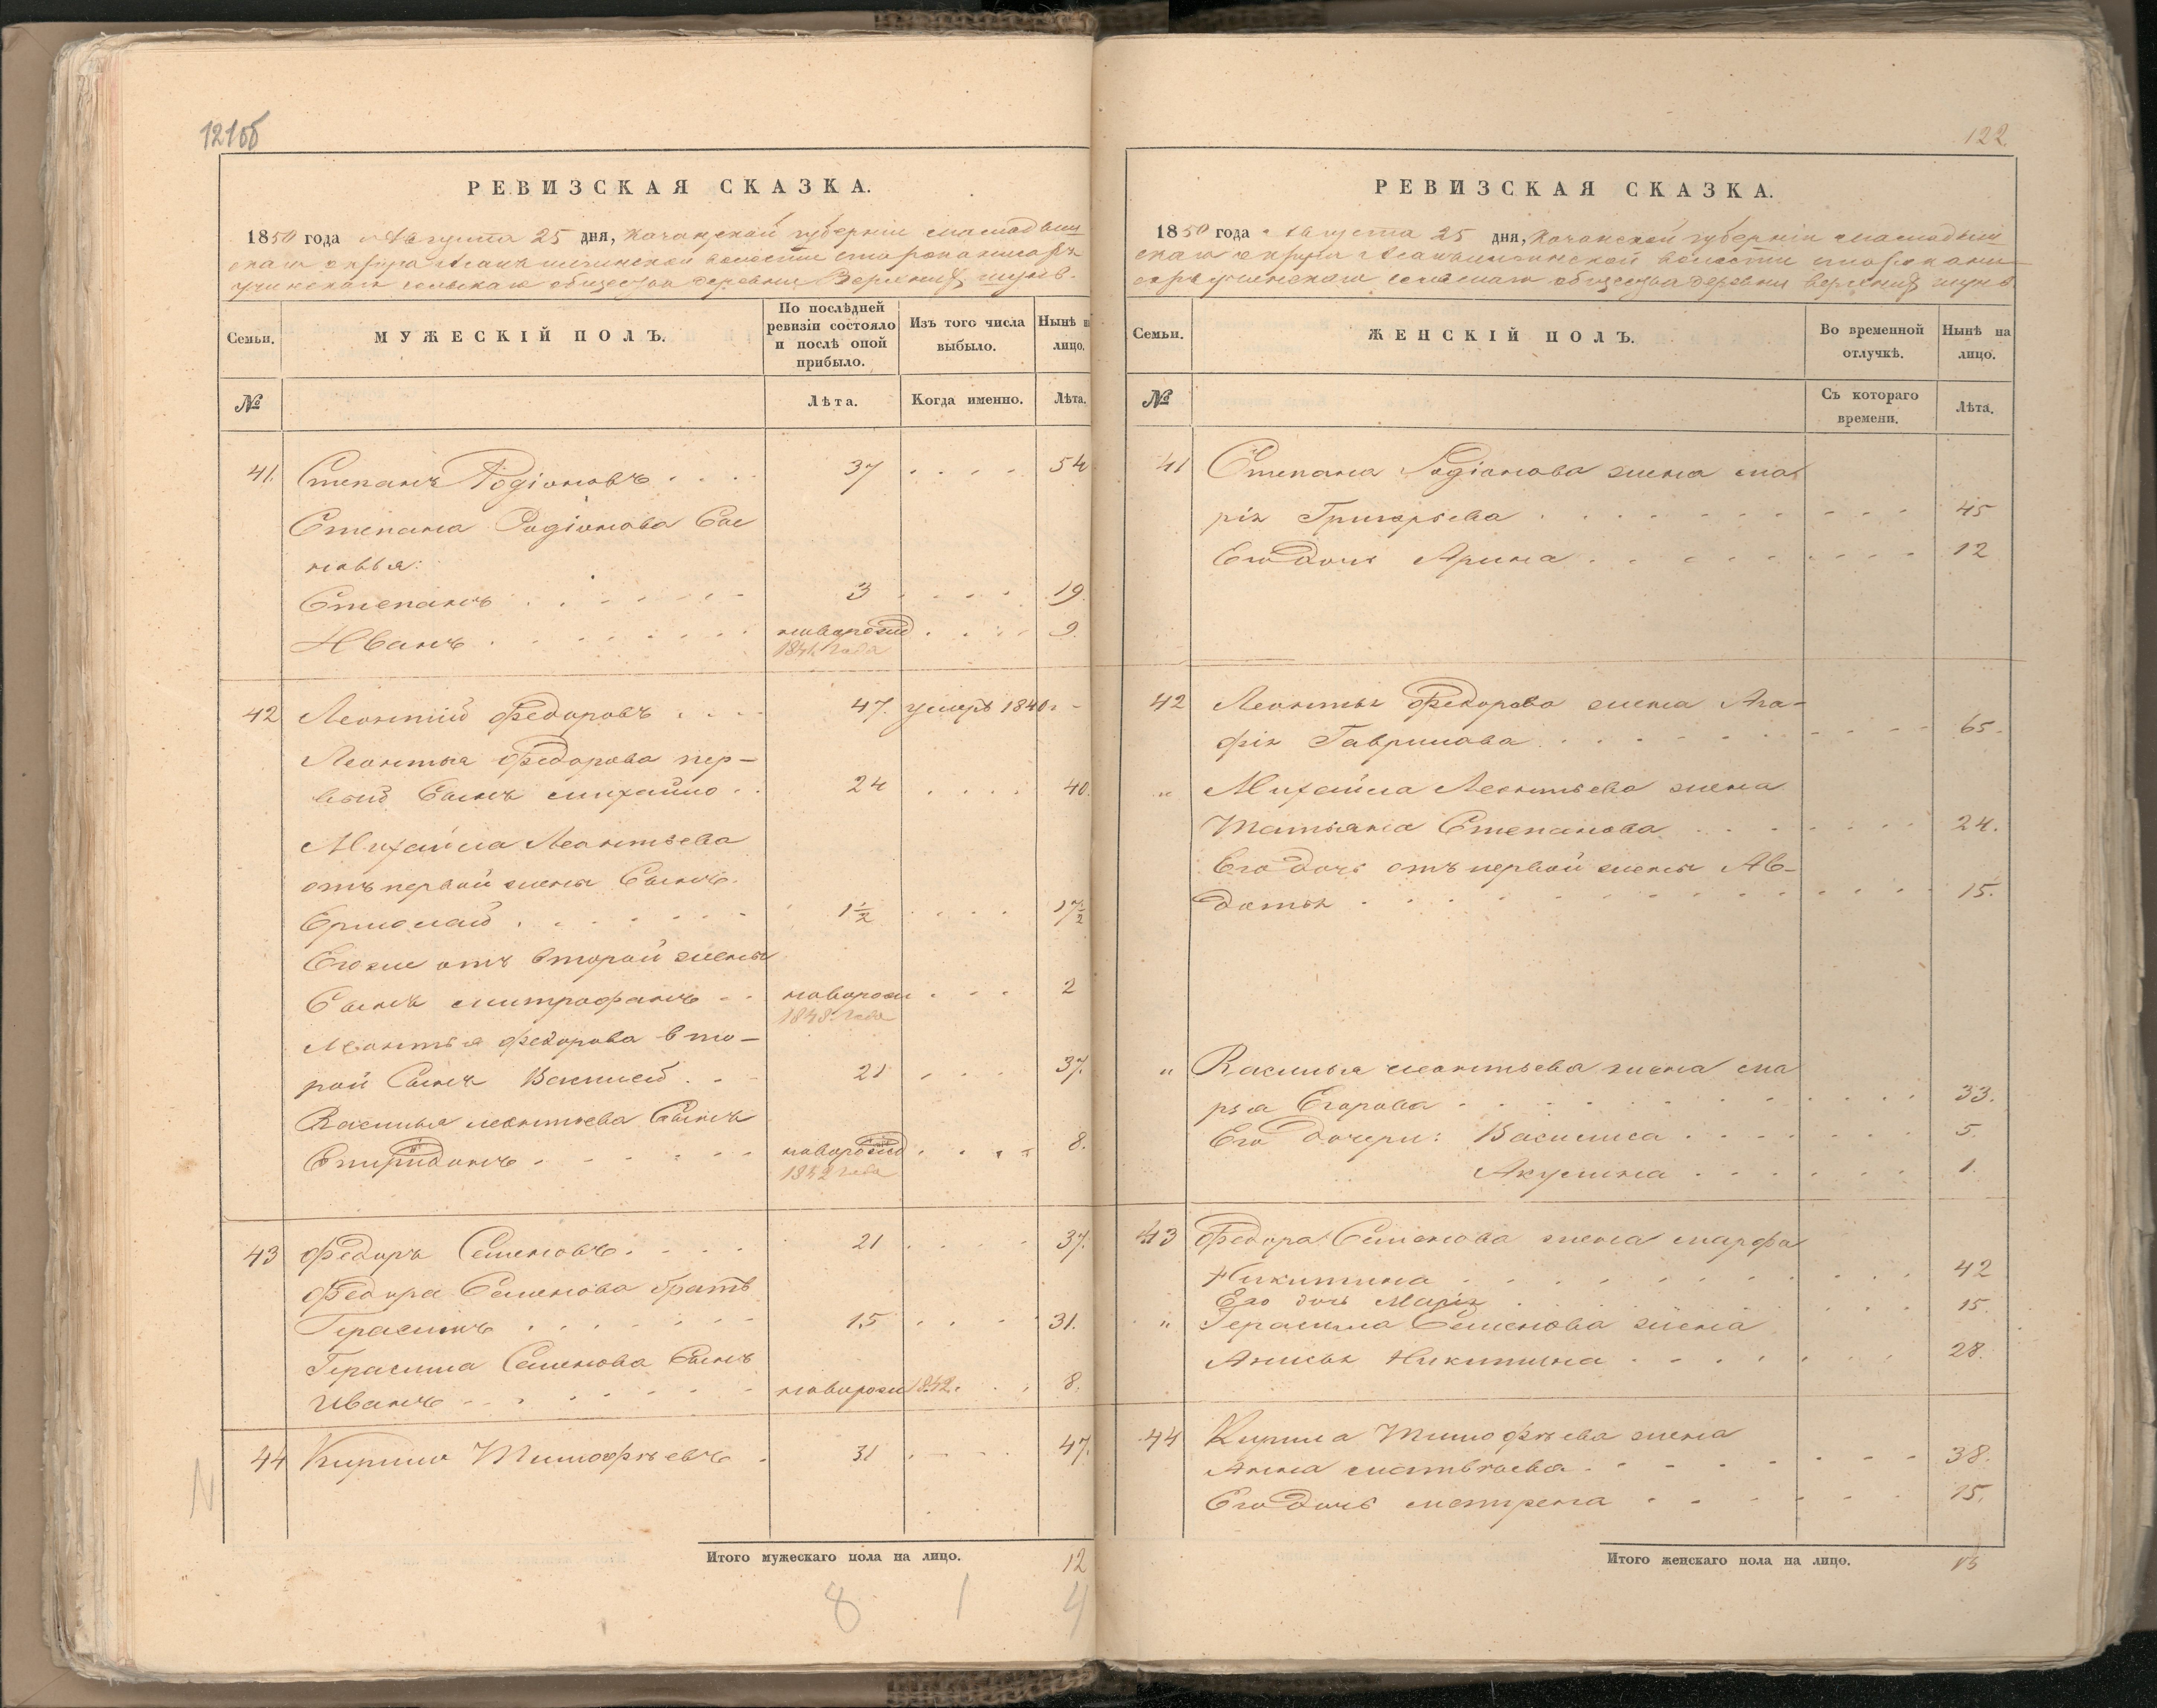 121об
РЕВИЗСКАЯ СКАЗКА.
1850 года Августа 25 дня, Казанской губерніи Мамадыш
скаго округа волости
сельскаго общества деревни Верхних шунь
Семьи.
МУЖЕСКІЙ ПОЛЪ.
По послѣдней ревизіи состояло и послѣ оной прибыло.
Изъ того числа выбыло.
Нынѣ н лицо.
№
Лѣта.
Когда именно.
Лѣта.
41. Степанъ Родіоновъ 37 54
Степана Родіонова Сы
новья:
Степанъ 3 19.
Иванъ новорожд 9.
1841 года
42 Леонтій Федоровъ 47. умеръ 1840
Леонтья Федорова пер-
вый Сынъ Михайло 24 40.
Михайла Леонтьева
отъ первой жены Сынъ.
Ермолай 1½ 17½
Его же отъ второй жены
Сынъ Митрофанъ новорож 2
1848 года
Леонтья Федорова вто-
рой Сынъ Василей 21 37.
Василья Леонтьева Сынъ
Спиридонъ новорожд 8.
1842 года
43 Федоръ Семеновъ 21 37.
Федора Семенова братъ
Герасимъ 15 31.
Герасима Семенова Сынъ
Иванъ новорож 1842. 8.
44 Кирило Тимофѣевъ 31 47.
Итого мужескаго пола на лицо. 12
8 1 4
122.
РЕВИЗСКАЯ СКАЗКА.
1850 года Августа 25 дня, Казанской губерніи Мамадыш
скаго округа волости
сельскаго общества деревни верхних шунь
Семьи.
ЖЕНСКІЙ ПОЛЪ.
Во временной отлучкѣ.
Нынѣ на лицо.
№
Съ котораго времени.
Лѣта.
41 Степана Родіонова жена Ма
рія Григорьева 45
Его Дочь Арина 12
42 Леонтья Федорова жена Ага-
фія Гаврилова 65.
" Михайла Леонтьева жена
Татьяна Степанова 24.
Его Дочь отъ первой жены Ав-
дотья 15.
" Василья Леонтьева жена Ма
рья Егорова 33.
Его Дочери: Василиса 5.
Акулина 1.
43 Федора Семенова жена Марфа
Никитина 42
Его дочь Марія 15.
" Герасима Семенова жена
Анисья Никитина 28.
44 Кирила Тимофѣева жена
Анна Матвѣева 38.
Его Дочь Матрена 15.
Итого женскаго пола на лицо. 13